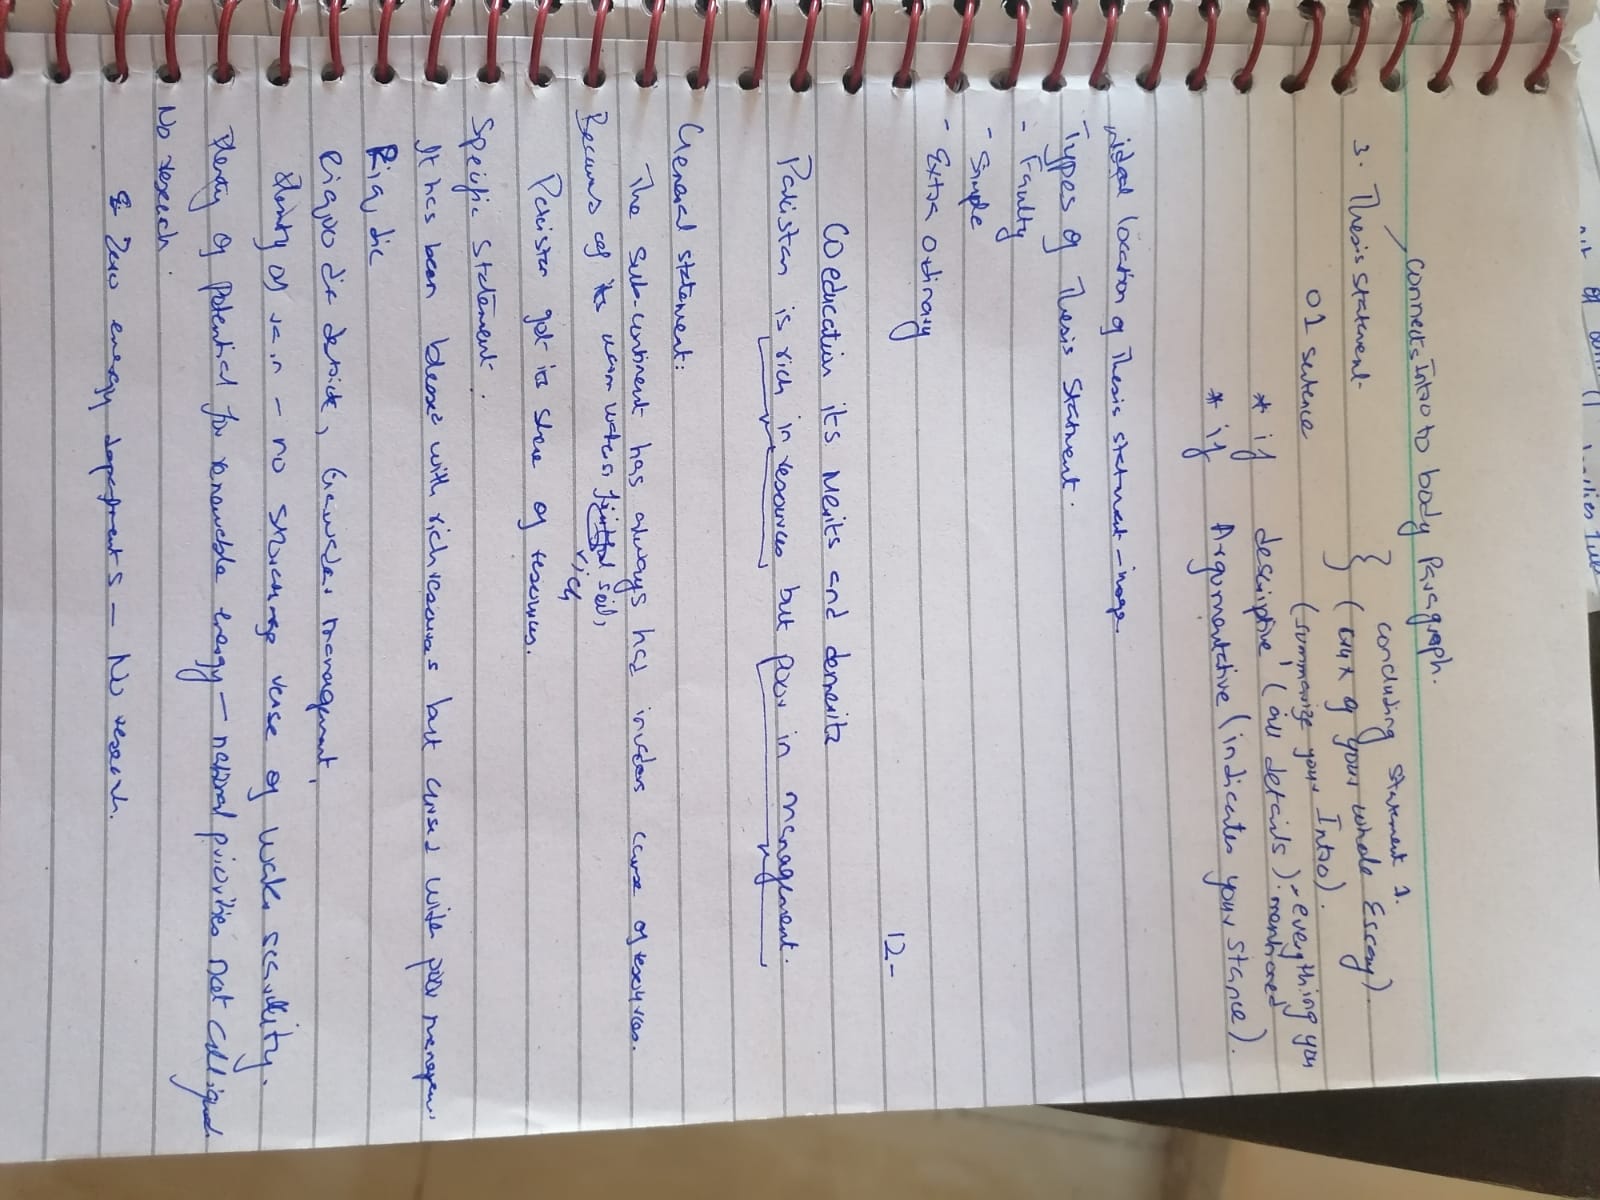 connects Intro to body Paragraph.
3. Thesis statement
01 sentence
} concluding statement 1.
(crux of your whole Essay).
(summarize your Intro).
* if descriptive (all details) - everything you mentioned
* if Argumentative (indicates your stance).
ideal location of Thesis statment -
Types of Thesis Statment.
- Faulty
- Simple
- Extra ordinary
12-
CO education its Merits and demerits
Pakistan is rich in resources but poor in management.
General statement:
The sub-continent has always had invaders cause of resources.
Because of its warm waters, soil,
rich
Pakistan got its share of resources.
Specific statement.
It has been blessed with rich resources but cursed with poor
district, Gawadar management,
Plenty of rain - no of water
Plenty of potential for renewable energy - national priorities not
No research.
Zero energy departments - No research.